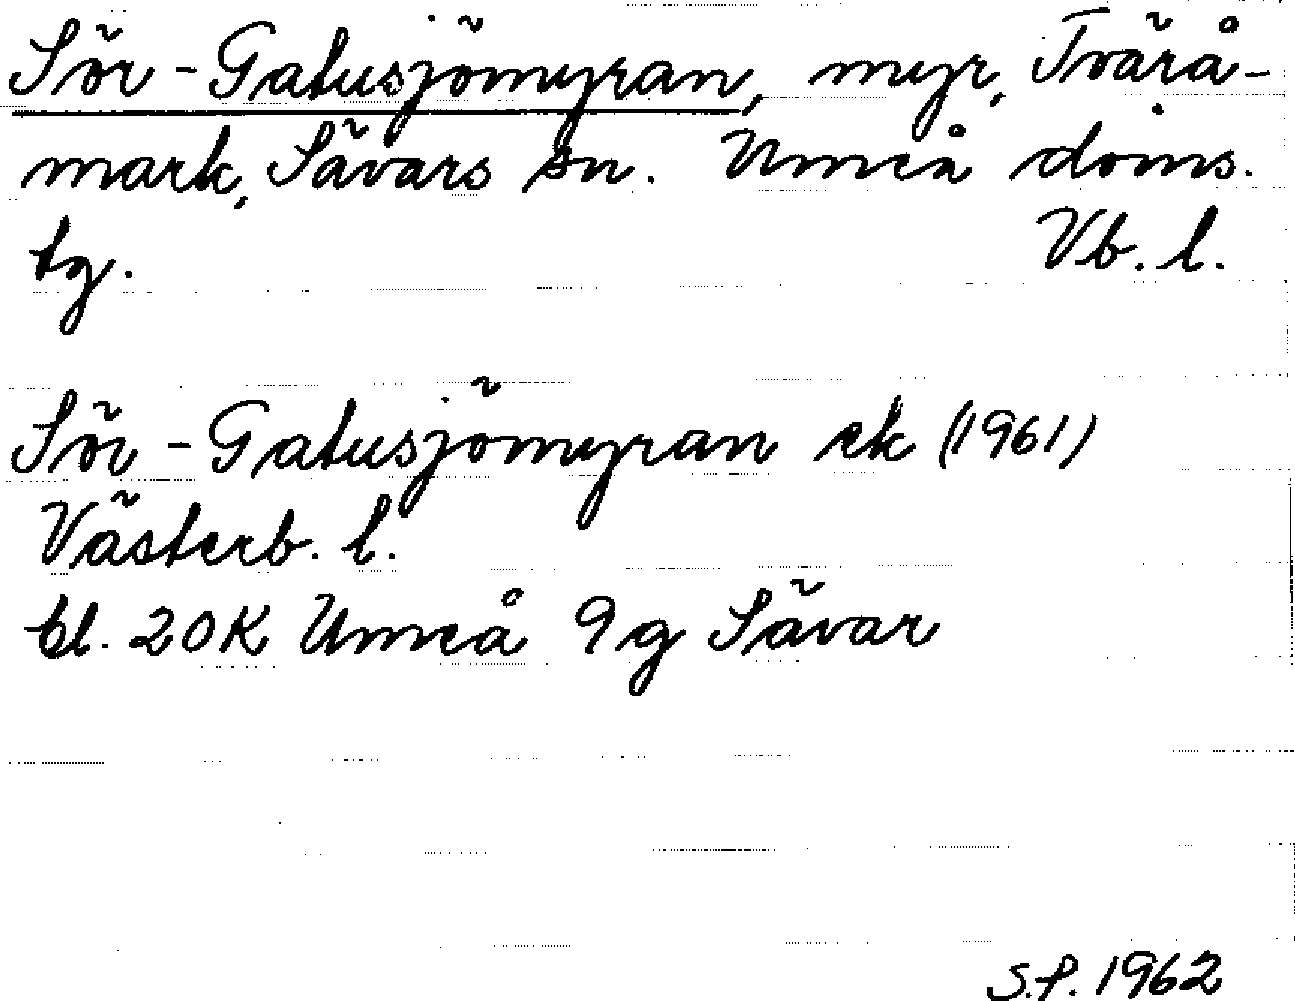 Sör-Gatusjömyran, myr, Tvärå-
mark, Sävars sn. Umeå doms.
tg. Vb. l.
Sör-Gatusjömyran ek (1961)
Västerb. l.
bl. 20K Umeå 9g Sävar
S.f. 1962